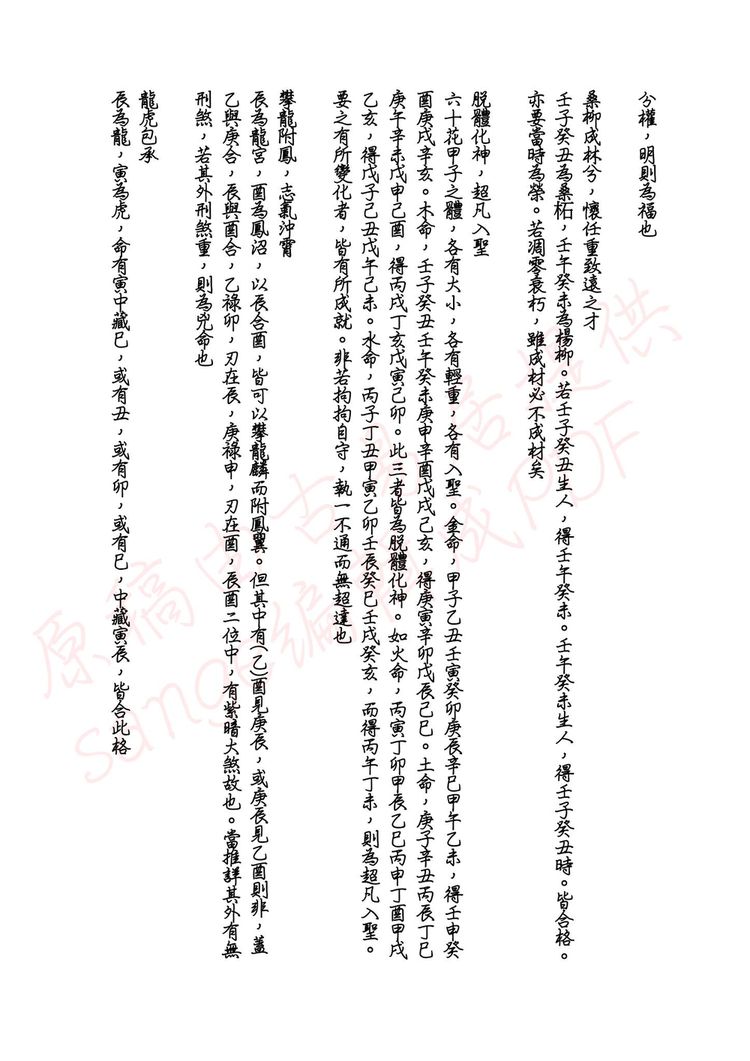 分權，明則為福也
桑柳成林兮，懷任重致遠之才
壬子癸丑為桑柘，壬午癸未為楊柳。若壬子癸丑生人，得壬午癸未。壬午癸未生人，得壬子癸丑時。皆合格。
亦要當時為榮。若凋零衰朽，雖成材必不成材矣
脫體化神，超凡入聖
六十花甲子之體，各有大小，各有輕重，各有入聖。金命，甲子乙丑壬寅癸卯庚辰辛巳甲午乙未，得壬申癸
酉庚戌辛亥。木命，壬子癸丑壬午癸未庚申辛酉戊戌己亥，得庚寅辛卯戊辰己巳。土命，庚子辛丑丙辰丁巳
庚午辛未戊申己酉，得丙戌丁亥戊寅己卯。此三者皆為脫體化神。如火命，丙寅丁卯甲辰乙巳丙申丁酉甲戌
乙亥，得戊子己丑戊午己未。水命，丙子丁丑甲寅乙卯壬辰癸巳壬戌癸亥，而得丙午丁未，則為超凡入聖。
要之有所變化者，皆有所成就。非若拘拘自守，執一不通而無超達也
攀龍附鳳，志氣沖霄
辰為龍宮，酉為鳳沼，以辰合酉，皆可以攀龍麟而附鳳翼。但其中有(乙)酉見庚辰，或庚辰見乙酉則非，蓋
乙與庚合，辰與酉合，乙祿卯，刃在辰，庚祿申，刃在酉，辰酉二位中，有紫暗大煞故也。當推詳其外有無
刑煞，若其外刑煞重，則為兇命也
龍虎包承
辰為龍，寅為虎，命有寅中藏巳，或有丑，或有卯，或有巳，中藏寅辰，皆合此格
原稿由古易居提供
sange編輯成PDF